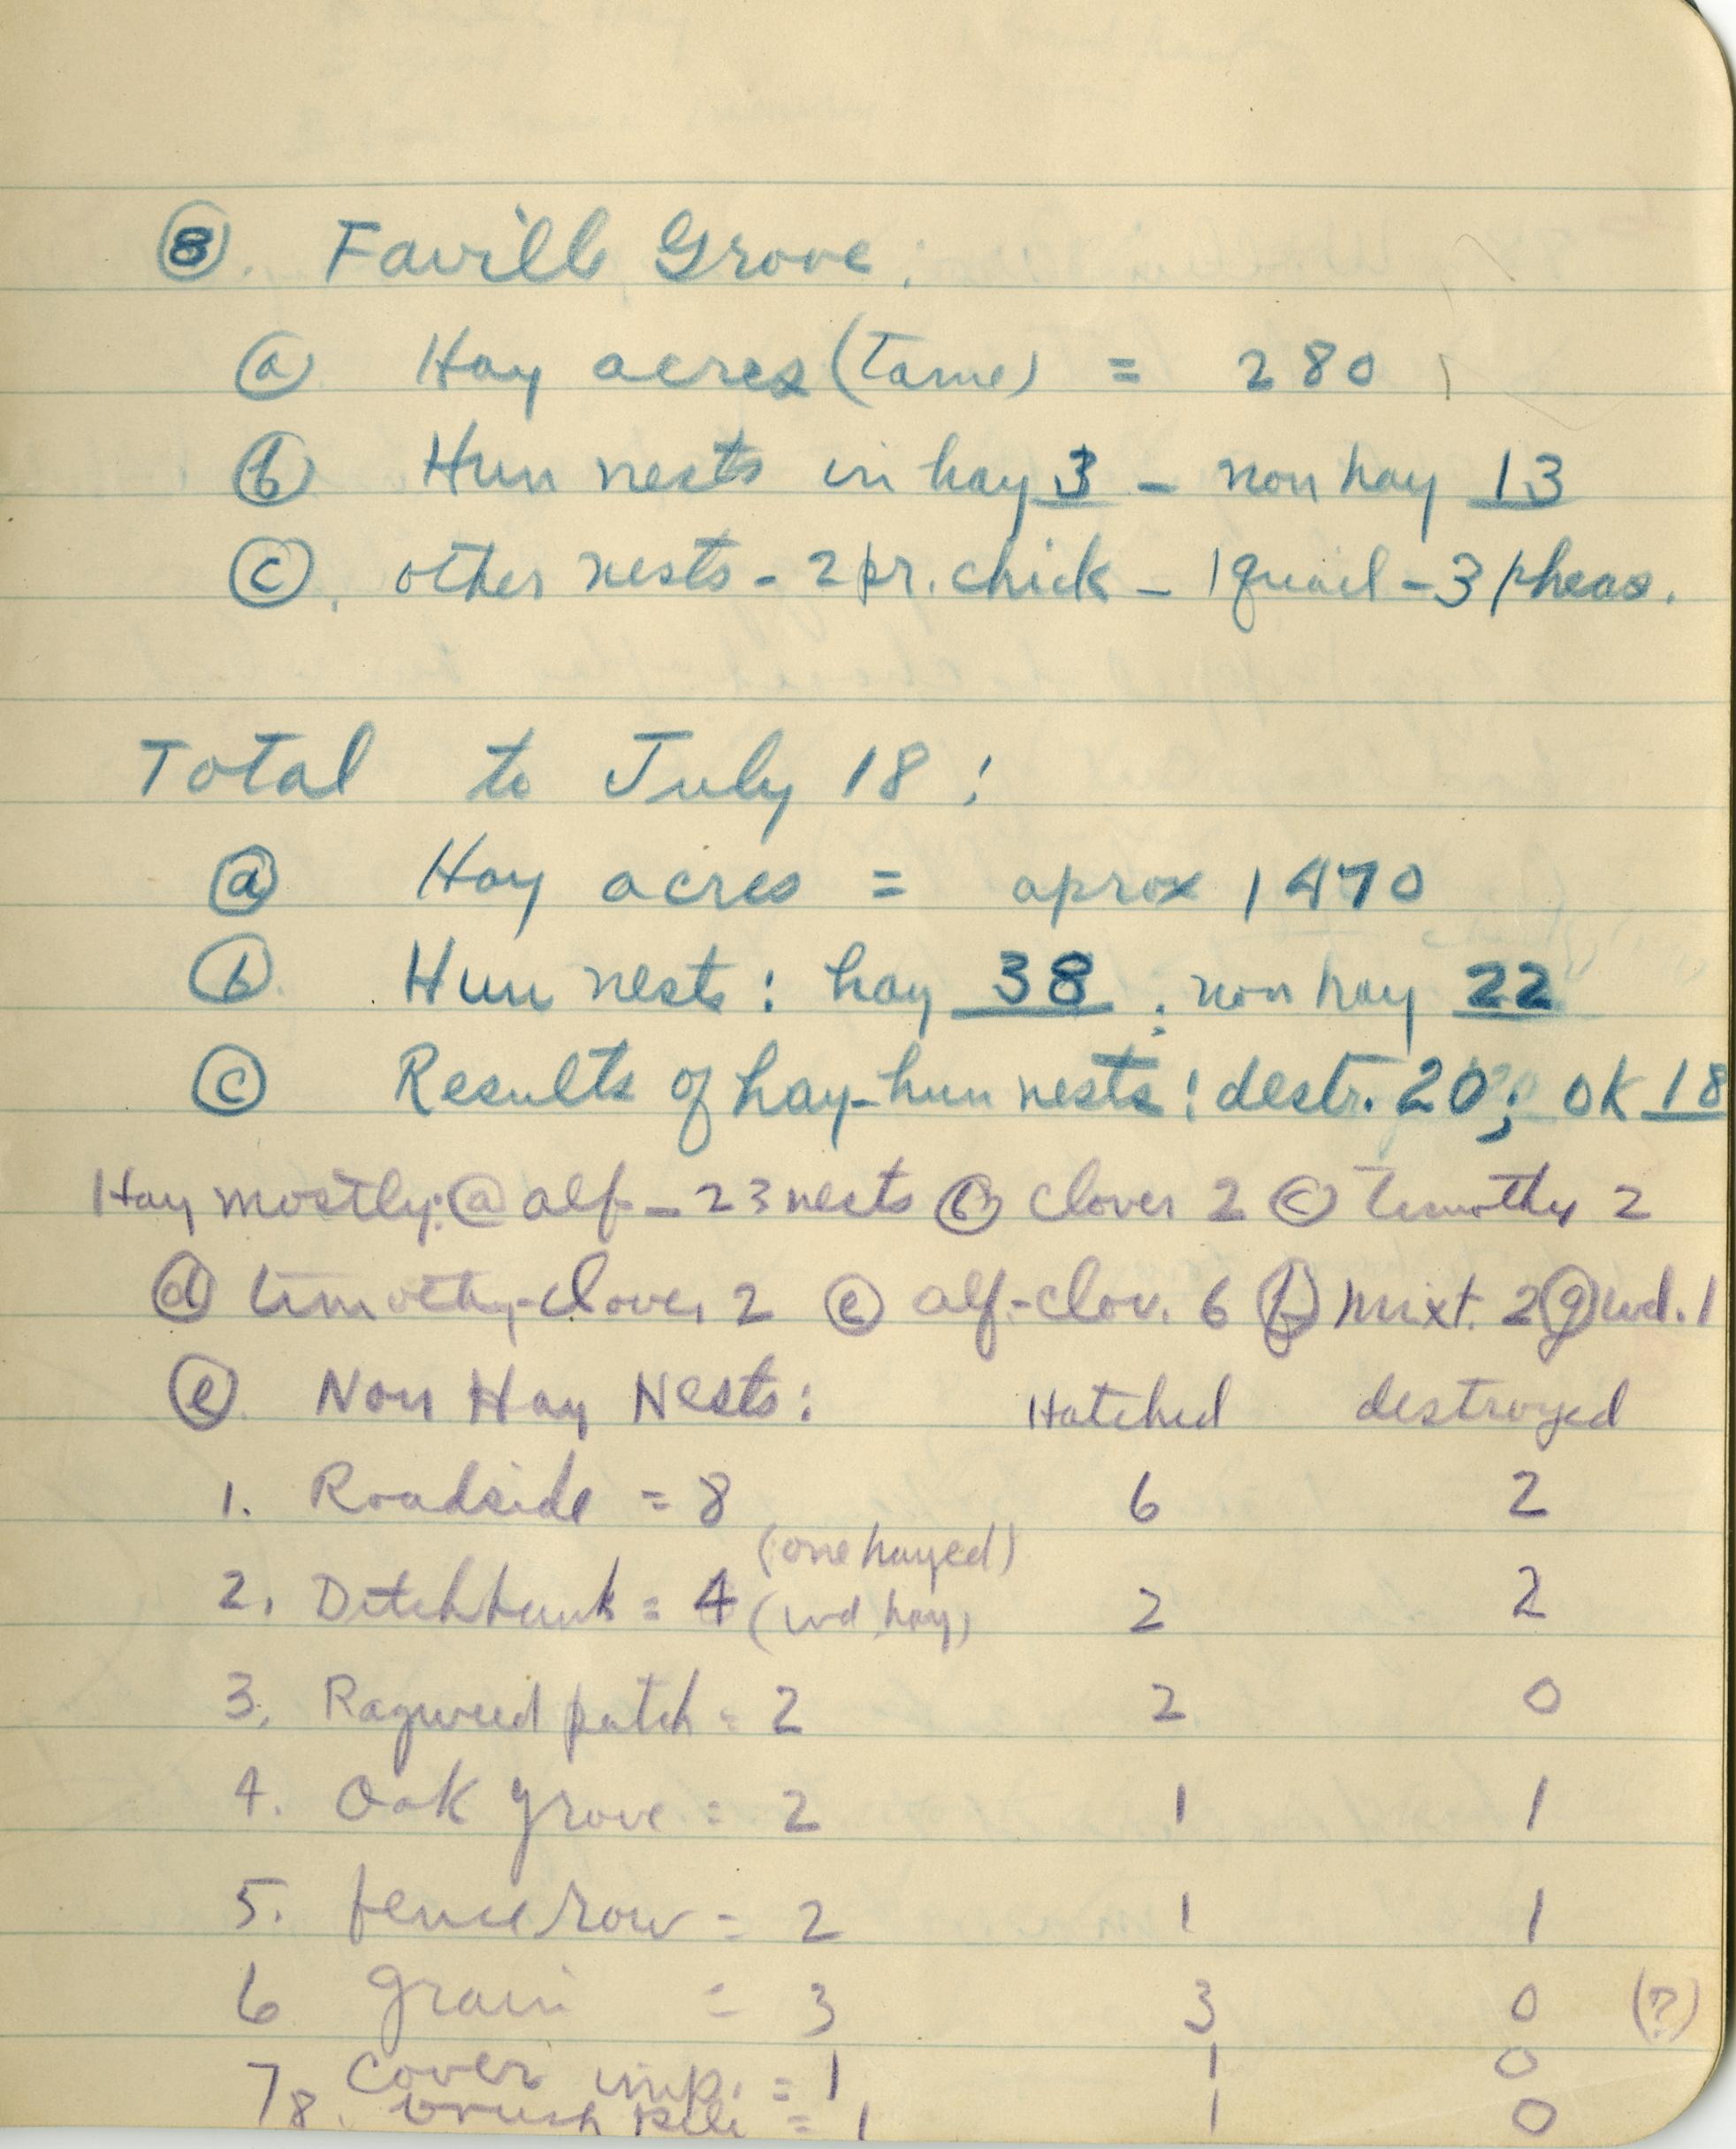 ⑧. Faville Grove:
ⓐ Hay acres (Tame) = 280
ⓑ Hun nests in hay 3 - non hay 13
ⓒ. other nests - 2 pr. chick - 1 quail - 3 pheas.
Total to July 18:
ⓐ Hay acres = aprox 1470
ⓑ. Hun nests: hay 38; non hay 22
ⓒ Results of hay-hun nests: destr. 20; OK 18
Hay mostly: ⓐ alf - 23 nests ⓑ Clover 2 ⓒ Timothy 2
ⓓ timothy-clover 2 ⓔ alf-clov. 6 ⓕ mixt. 2 ⓖ wd. 1
ⓔ. Non Hay Nests: Hatched destroyed
1. Roadside = 8 6 2
(one hayed)
2. Ditchbank = 4 (wd hay) 2 2
3. Ragweed patch = 2 2 0
4. Oak grove = 2 1 1
5. fence row = 2 1 1
6 Grain = 3 3 0 (?)
7 Cover imp. = 1 1 0
8. brush pile = 1 1 0